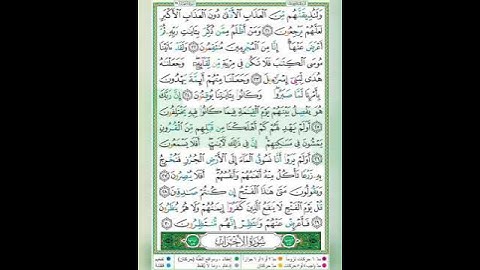 وَلَنُذِيقَنَّهُم مِّنَ ٱلْعَذَابِ ٱلْأَدْنَىٰ دُونَ ٱلْعَذَابِ ٱلْأَكْبَرِ
لَعَلَّهُمْ يَرْجِعُونَ ۝٢١ وَمَنْ أَظْلَمُ مِمَّن ذُكِّرَ بِـَٔايَٰتِ رَبِّهِۦ ثُمَّ
أَعْرَضَ عَنْهَآ ۚ إِنَّا مِنَ ٱلْمُجْرِمِينَ مُنتَقِمُونَ ۝٢٢ وَلَقَدْ ءَاتَيْنَا
مُوسَى ٱلْكِتَٰبَ فَلَا تَكُن فِى مِرْيَةٍ مِّن لِّقَآئِهِۦ ۖ وَجَعَلْنَٰهُ
هُدًى لِّبَنِىٓ إِسْرَٰٓءِيلَ ۝٢٣ وَجَعَلْنَا مِنْهُمْ أَئِمَّةً يَهْدُونَ
بِأَمْرِنَا لَمَّا صَبَرُوا۟ ۖ وَكَانُوا۟ بِـَٔايَٰتِنَا يُوقِنُونَ ۝٢٤ إِنَّ رَبَّكَ
هُوَ يَفْصِلُ بَيْنَهُمْ يَوْمَ ٱلْقِيَٰمَةِ فِيمَا كَانُوا۟ فِيهِ يَخْتَلِفُونَ
۝٢٥ أَوَلَمْ يَهْدِ لَهُمْ كَمْ أَهْلَكْنَا مِن قَبْلِهِم مِّنَ ٱلْقُرُونِ
يَمْشُونَ فِى مَسَٰكِنِهِمْ ۚ إِنَّ فِى ذَٰلِكَ لَءَايَٰتٍ ۖ أَفَلَا يَسْمَعُونَ
۝٢٦ أَوَلَمْ يَرَوْا۟ أَنَّا نَسُوقُ ٱلْمَآءَ إِلَى ٱلْأَرْضِ ٱلْجُرُزِ فَنُخْرِجُ
بِهِۦ زَرْعًا تَأْكُلُ مِنْهُ أَنْعَٰمُهُمْ وَأَنفُسُهُمْ ۖ أَفَلَا يُبْصِرُونَ ۝٢٧
وَيَقُولُونَ مَتَىٰ هَٰذَا ٱلْفَتْحُ إِن كُنتُمْ صَٰدِقِينَ ۝٢٨
قُلْ يَوْمَ ٱلْفَتْحِ لَا يَنفَعُ ٱلَّذِينَ كَفَرُوٓا۟ إِيمَٰنُهُمْ وَلَا هُمْ يُنظَرُونَ
۝٢٩ فَأَعْرِضْ عَنْهُمْ وَٱنتَظِرْ إِنَّهُم مُّنتَظِرُونَ ۝٣٠
سُورَةُ الأَحْزَابِ